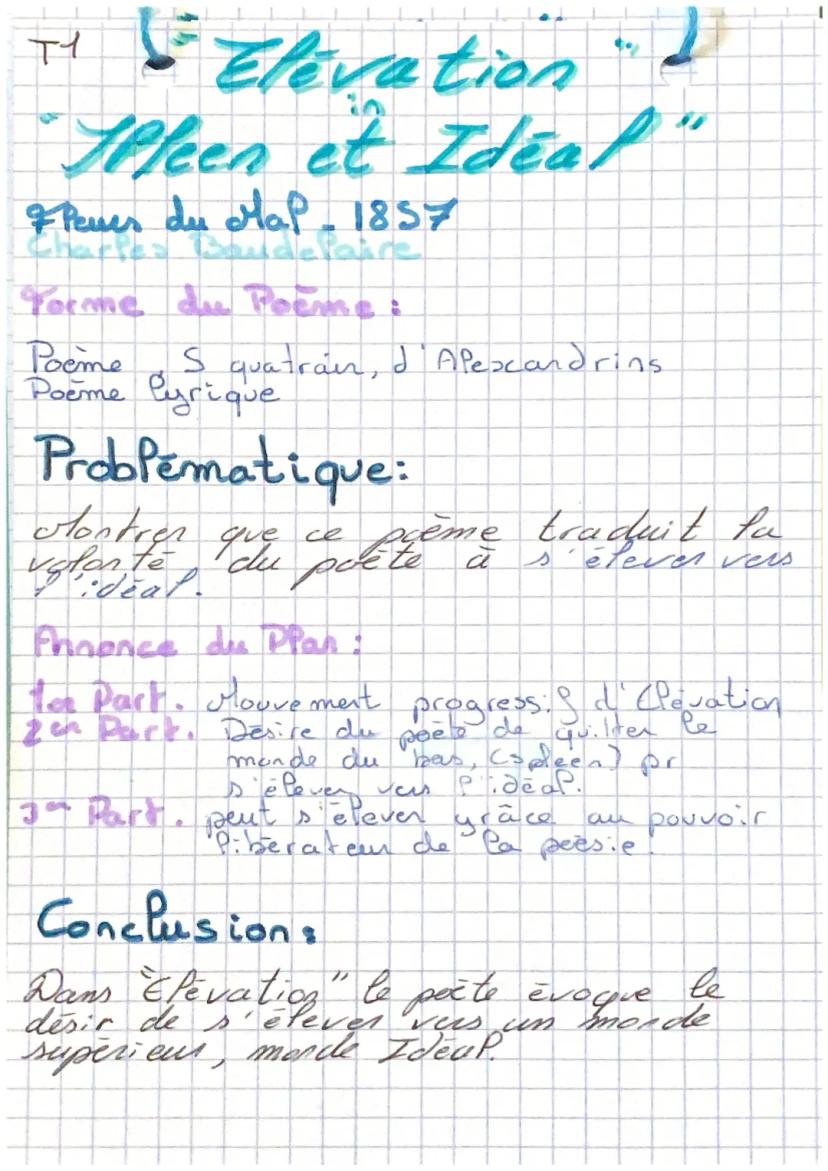 T1
"Elévation"
in
"Spleen et Idéal"
Fleurs du Mal - 1857
Charles Baudelaire
Forme du Poème :
Poème , 5 quatrain, d'Alexcandrins
Poème lyrique
Problématique:
Montrer que ce poème traduit la
volonté du poète à s'élever vers
l'idéal.
Annonce du Plan :
1er Part. Mouvement progressif d'Elévation
2en Part. Désire du poète de quitter le
monde du bas, (spleen) pr
s'élever vers l'idéal.
3en Part. peut s'élever grâce au pouvoir
libérateur de la poésie.
Conclusion:
Dans "Elévation" le poète évoque le
désir de s'élever vers un monde
supérieur, monde Idéal.